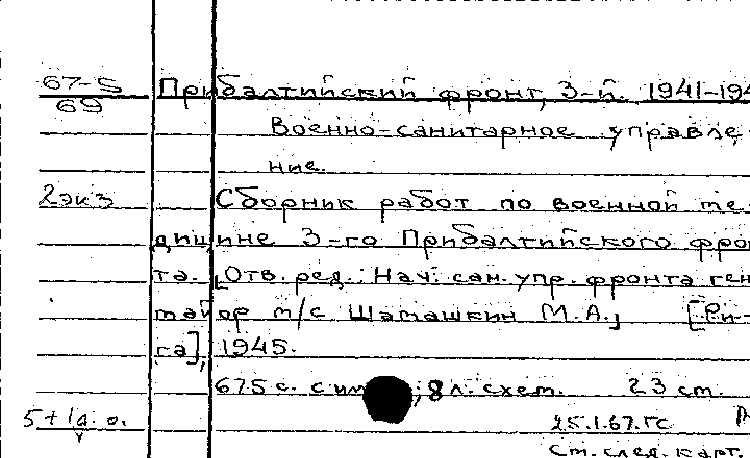 67-5
69
Прибалтийский фронт, 3-й. 1941-194
Военно-санитарное управле-
ние.
2экз
Сборник работ по военной ме-
дицине 3-го Прибалтийского фрон
та. [Отв. ред.: Нач. сан. упр. фронта ген
майор м/с Шамашкин М.А.] [Ри-
га], 1945.
675 с. с ил ; 8 л. схем. 23 см.
5+1д.о.
25.1.67.ГС
См. след. карт.